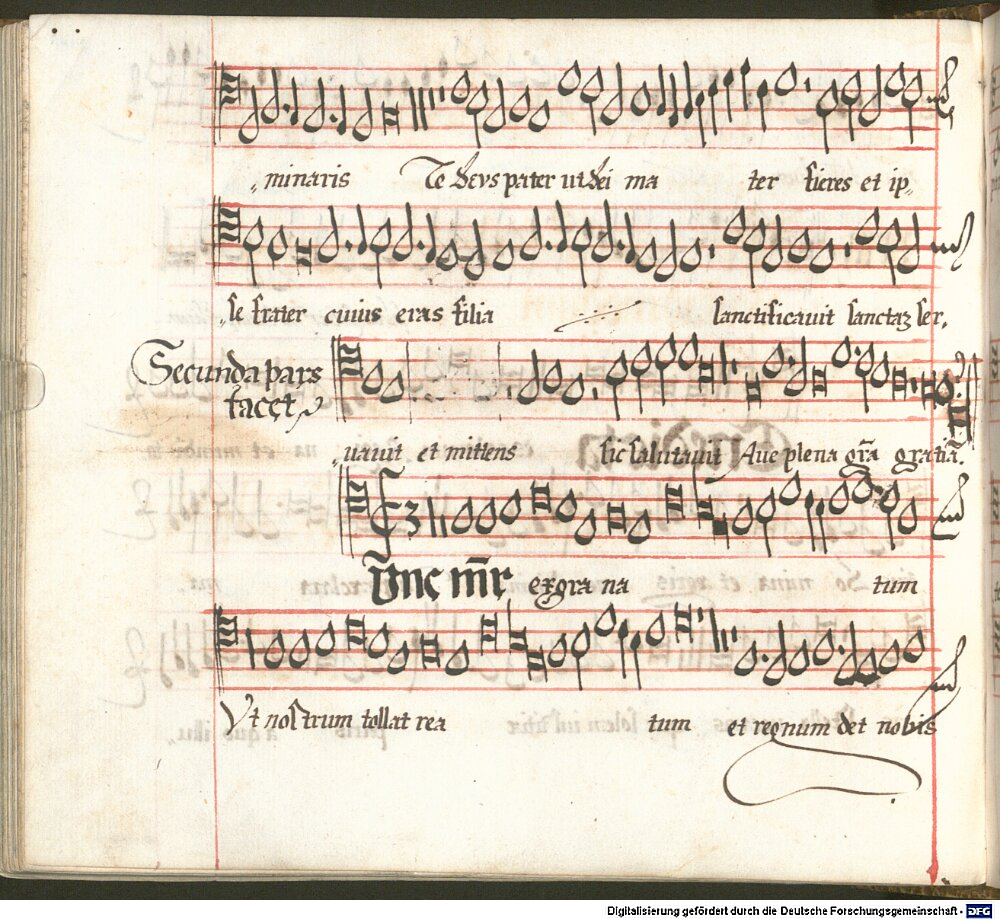 „ minaris Te devs pater ut dei ma ter fieres et ip„
„se frater cuius eras filia sanctificavit sanctaz ser,
Secunda pars
tacet
„uavit et mittens sic salutavit Aue plena gr̄a gratia.
Ȳnc mr̄ ex gra na tum
Vt nostrum tollat rea tum et regnum det nobis
Digitalisierung gefördert durch die Deutsche Forschungsgemeinschaft - DFG